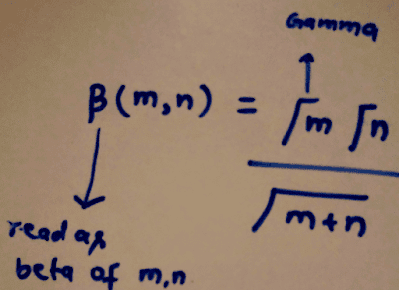 Gamma
β(m,n) = Γm Γn / Γm+n
read as
beta of m,n